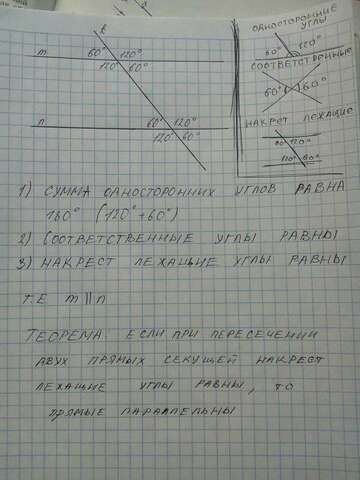 k
ОДНОСТОРОННИЕ
УГЛЫ
60° 120°
СООТВЕТСТВЕННЫЕ
60° 60°
НАКРЕСТ ЛЕЖАЩИЕ
60 120°
120° 60°
m 60° 120°
120° 60°
n 60° 120°
120° 60°
1) СУММА ОДНОСТОРОННИХ УГЛОВ РАВНА
180° (120°+60°)
2) СООТВЕТСТВЕННЫЕ УГЛЫ РАВНЫ
3) НАКРЕСТ ЛЕЖАЩЫЕ УГЛЫ РАВНЫ
Т.Е m || n
ТЕОРЕМА: ЕСЛИ ПРИ ПЕРЕСЕЧЕНИИ
ДВУХ ПРЯМЫХ СЕКУЩЕЙ НАКРЕСТ
ЛЕЖАЩИЕ УГЛЫ РАВНЫ, ТО
ПРЯМЫЕ ПАРАЛЛЕЛЬНЫ